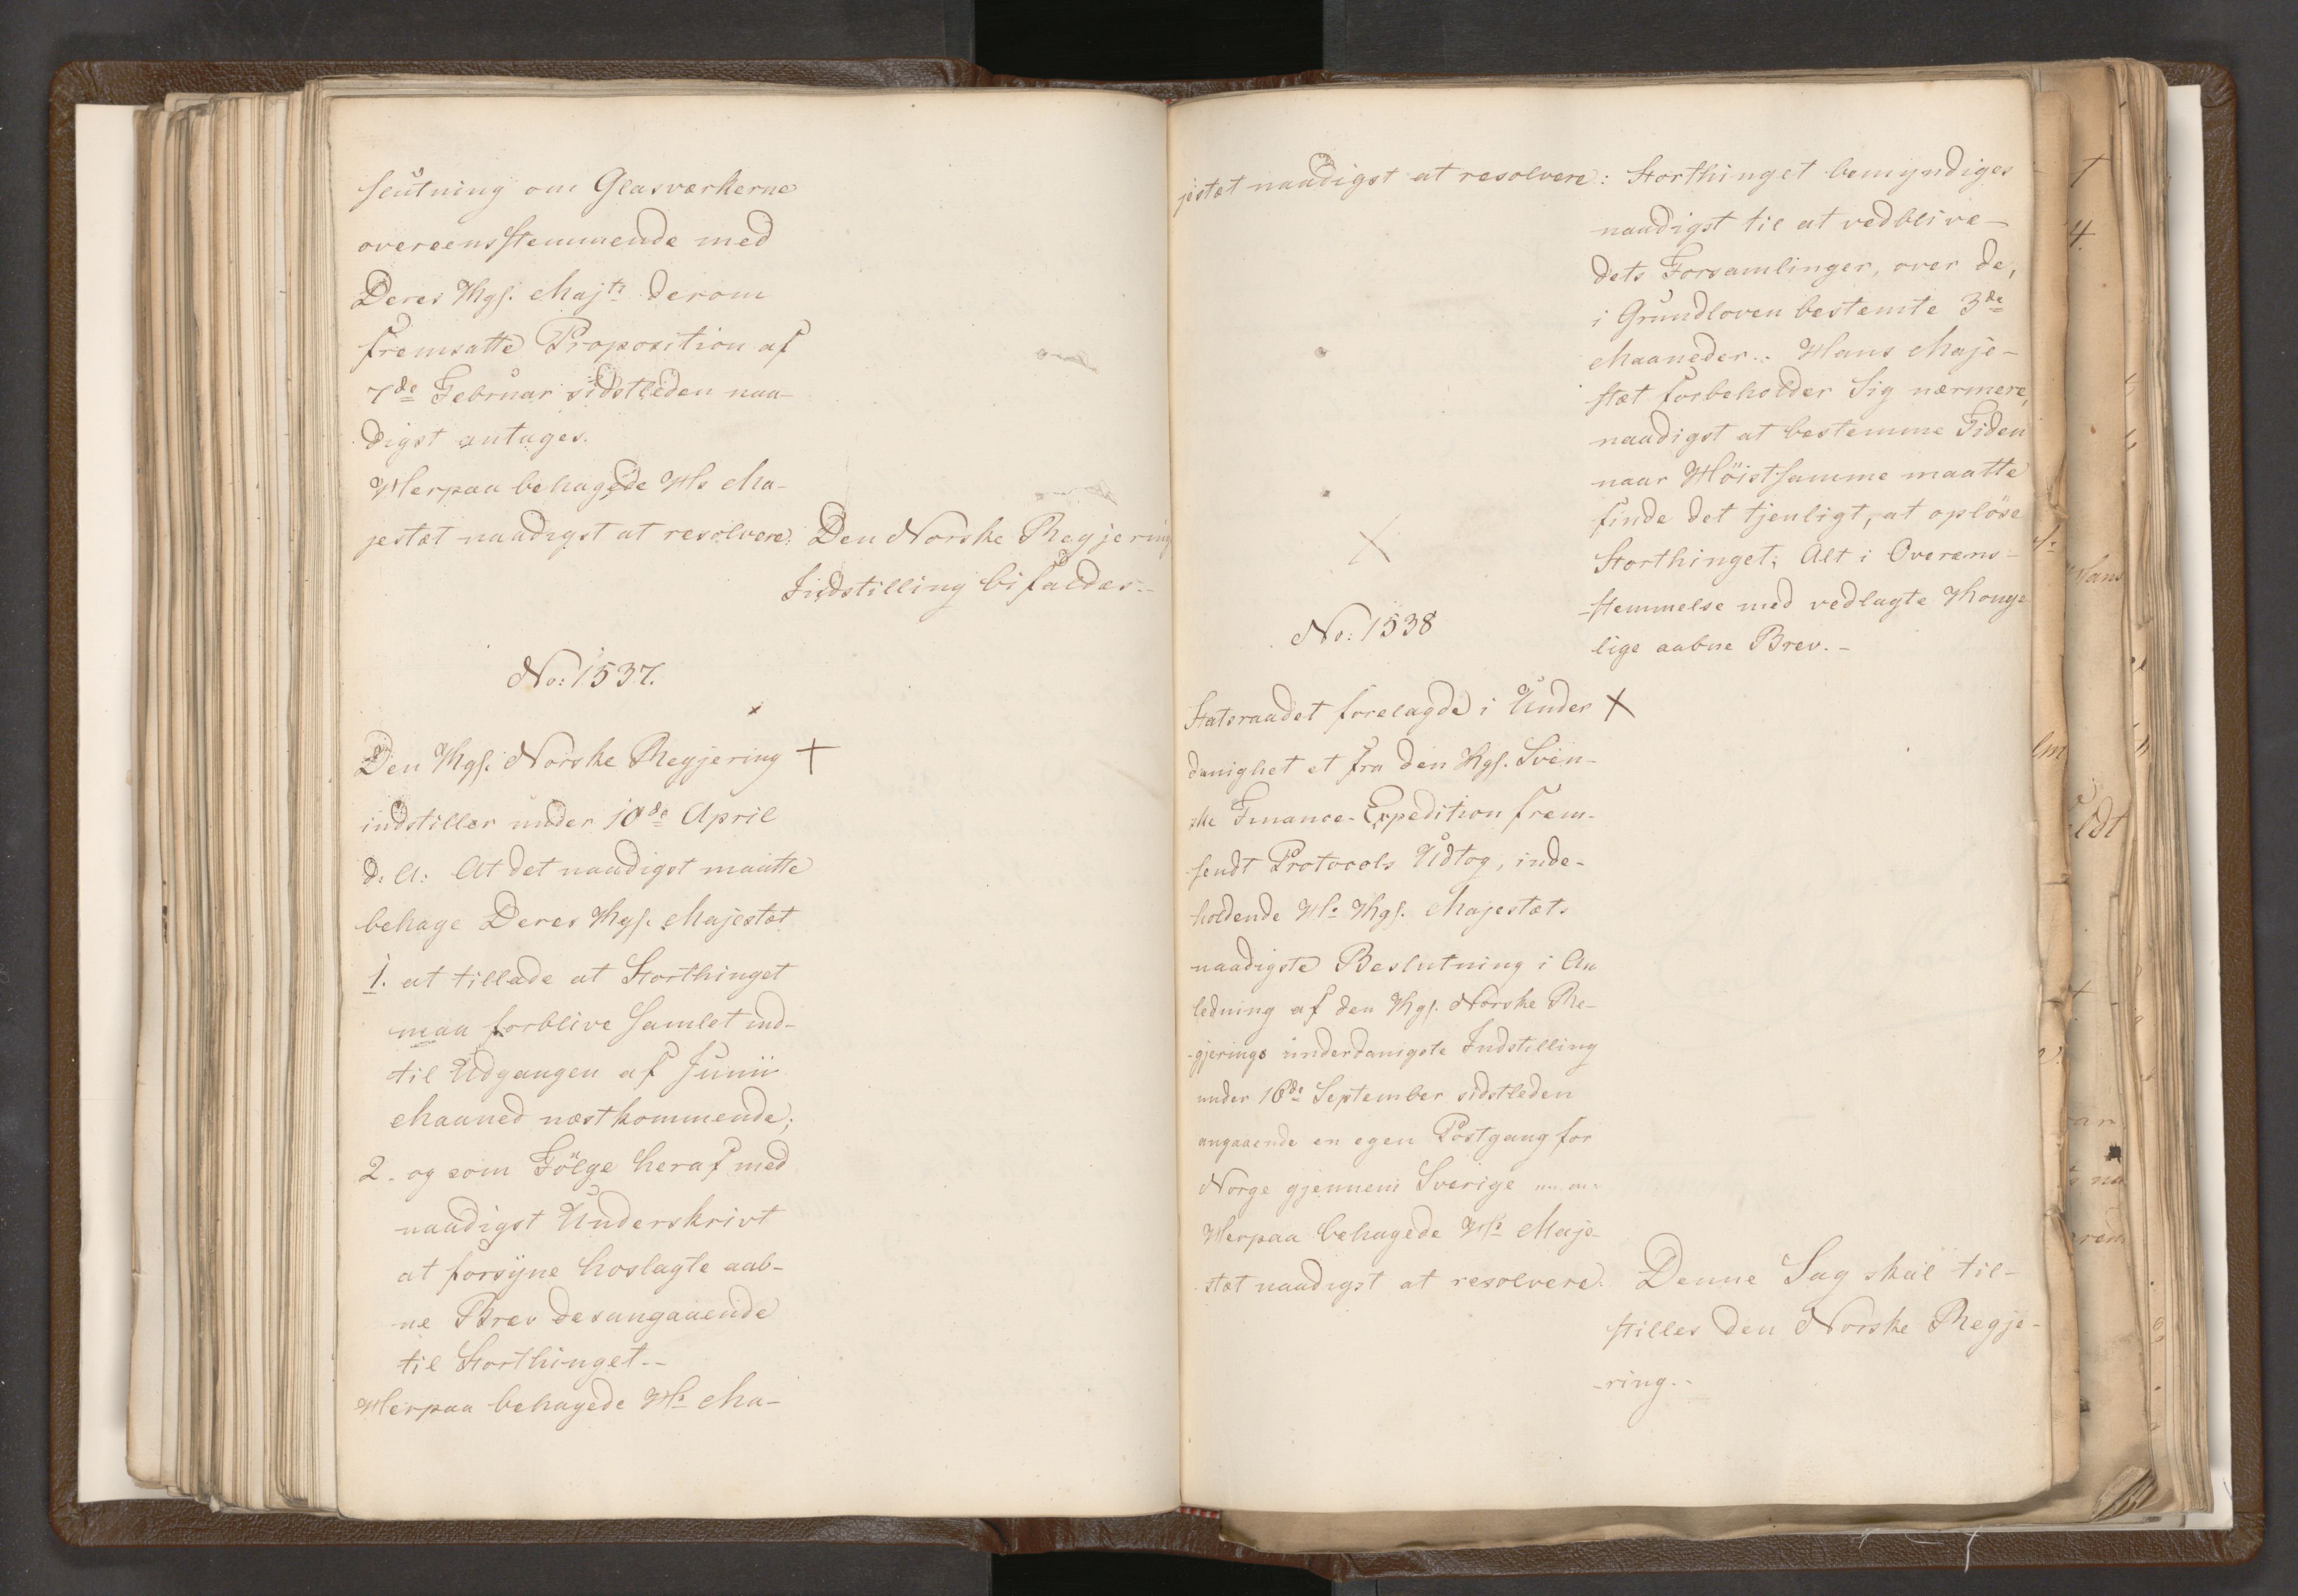 slutning om Glasværkerne
overeensstemmende med
Deres Kgs. Majts derom
fremsatte Proposition af
7de Februar sidstleden naa-
digst antages.
Herpaa behagede Hs Ma-
jestæt naadigst at resolvere: Den Norske Regjering
Indstilling bifaldes.-
No: 1537.
Den Kgs. Norske Regjering +
indstiller under 10de April
d. A: At det naadigst maatte
behage Deres Kgs. Majestæt
1. at tillade at Storthinget
maa forblive samlet ind-
til Udgangen af Junii
Maaned næstkommende;
2. og som Fölge heraf med
naadigst Underskrivt
at forsyne hoslagte aab-
ne Brev desangaaende
til Storthinget.-
Herpaa behagede Hs Ma-
jestæt naadigst at resolvere: Storthinget bemyndiges
naadigst til at vedblive
dets Forsamlinger, over de,
i Grundloven bestemte 3de
Maaneder. Hans Maje-
stæt forbeholder Sig nærmere,
naadigst at bestemme Tiden
naar Höistsamme maatte
finde det tjenligt, at oplöse
Storthinget; Alt i Overens-
-stemmelse med vedlagte Konge
lige aabne Brev. -
No: 1538
Statsraadet forelagde i Under X
danighet et fra den Kgs. Sven-
ske Finance-Expedition frem-
sendt Protocols Udtog, inde-
holdende Hs Kgs. Majestæts
naadigste Beslutning i An
ledning af den Kgs. Norske Re-
-gjerings underdanigste Indstilling
under 16de September sidstleden
angaaende en egen Postgang for
Norge gjennem Sverige
Herpaa behagede Hs Maje-
stæt naadigst at resolvere: Denne Sag skal til-
stilles den Norske Regje-
-ring.-